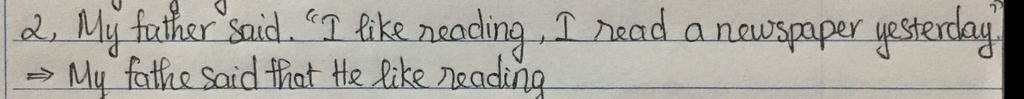 2, My father said. "I like reading, I read a newspaper yesterday"
⇒ My fathe said that He like reading